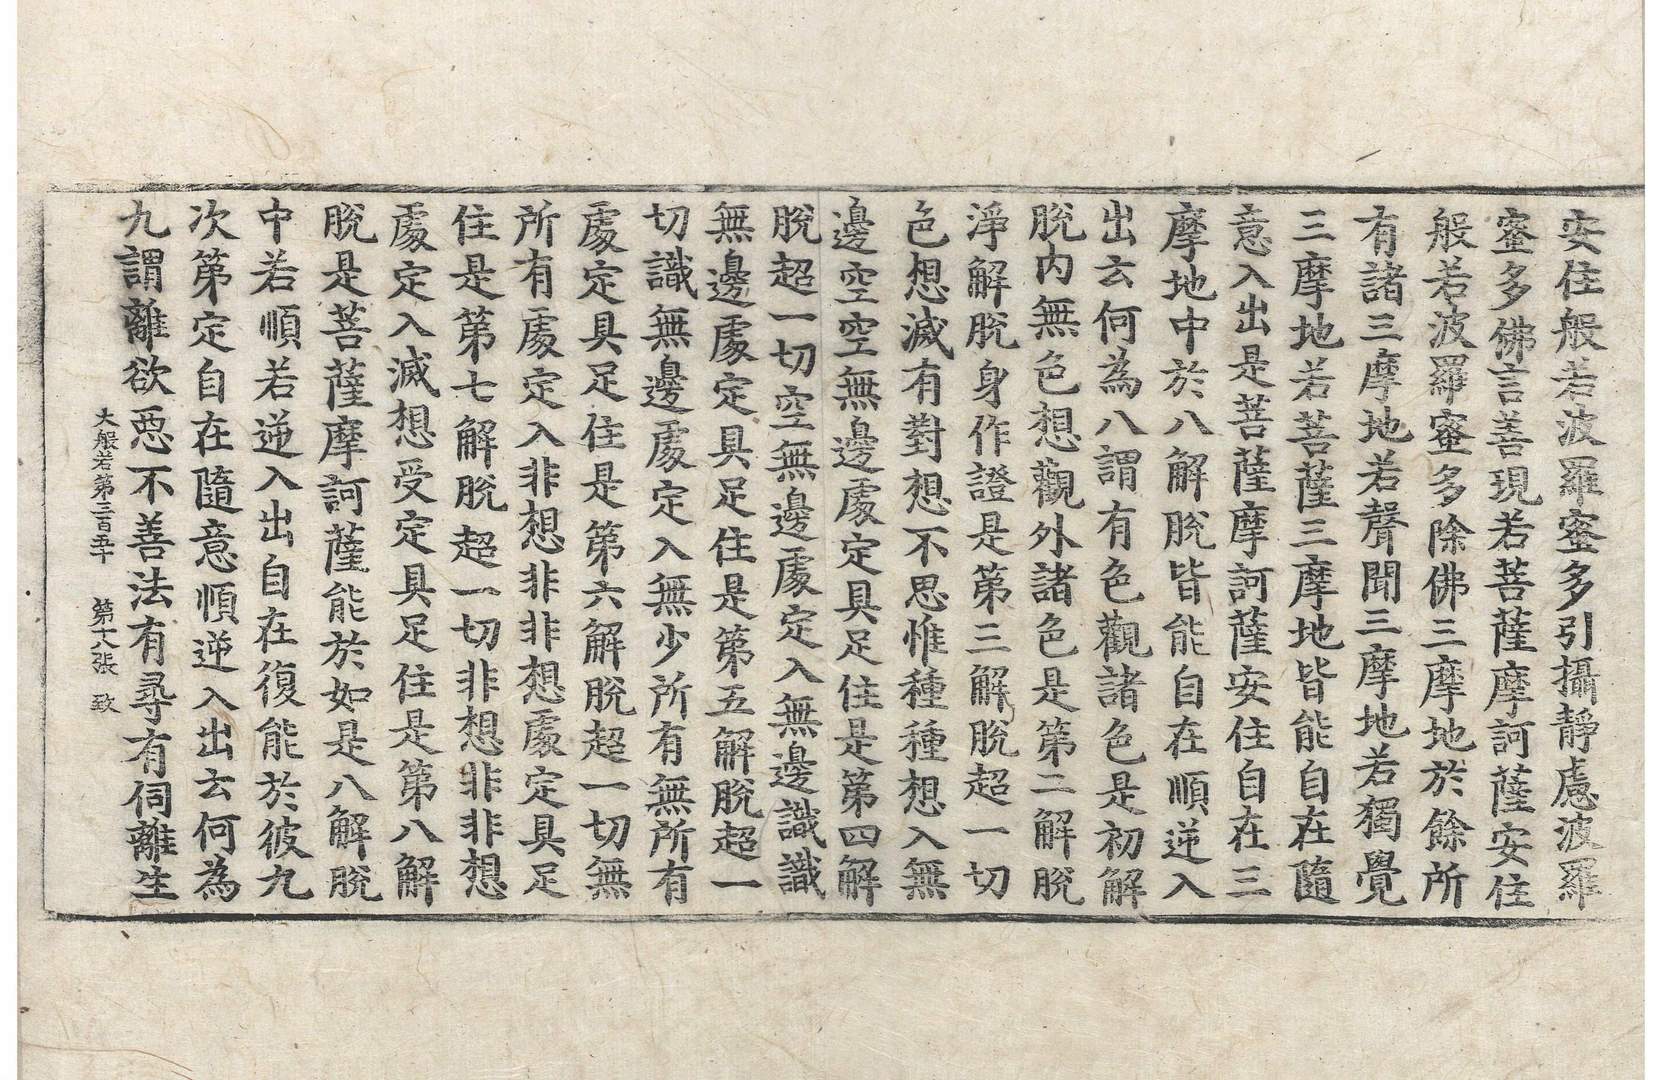 安住般若波羅蜜多引攝靜慮波羅
蜜多佛言善現若菩薩摩訶薩安住
般若波羅蜜多除佛三摩地於餘所
有諸三摩地若聲聞三摩地若獨覺
三摩地若菩薩三摩地皆能自在隨
意入出是菩薩摩訶薩安住自在三
摩地中於八解脫皆能自在順逆入
出云何為八謂有色觀諸色是初解
脫內無色想觀外諸色是第二解脫
淨解脫身作證是第三解脫超一切
色想滅有對想不思惟種種想入無
邊空空無邊處定具足住是第四解
脫超一切空無邊處定入無邊識識
無邊處定具足住是第五解脫超一
切識無邊處定入無少所有無所有
處定具足住是第六解脫超一切無
所有處定入非想非非想處定具足
住是第七解脫超一切非想非非想
處定入滅想受定具足住是第八解
脫是菩薩摩訶薩能於如是八解脫
中若順若逆入出自在復能於彼九
次第定自在隨意順逆入出云何為
九謂離欲惡不善法有尋有伺離生
大般若第三百五十 第十八張 致